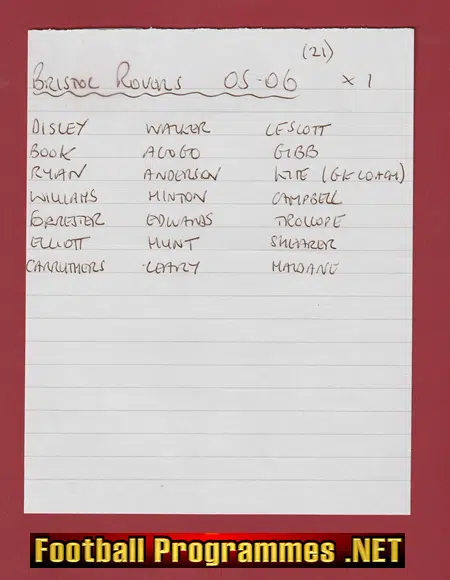 (21)
BRISTOL ROVERS 05-06 x 1
DISLEY WALKER LESCOTT
BOOK AGOGO GIBB
RYAN ANDERSON KITE (GK COACH)
WILLIAMS HINTON CAMPBELL
FORRESTER EDWARDS TROLLOPE
ELLIOTT HUNT SHEARER
CARRUTHERS LEARY HALDANE
Football Programmes .NET